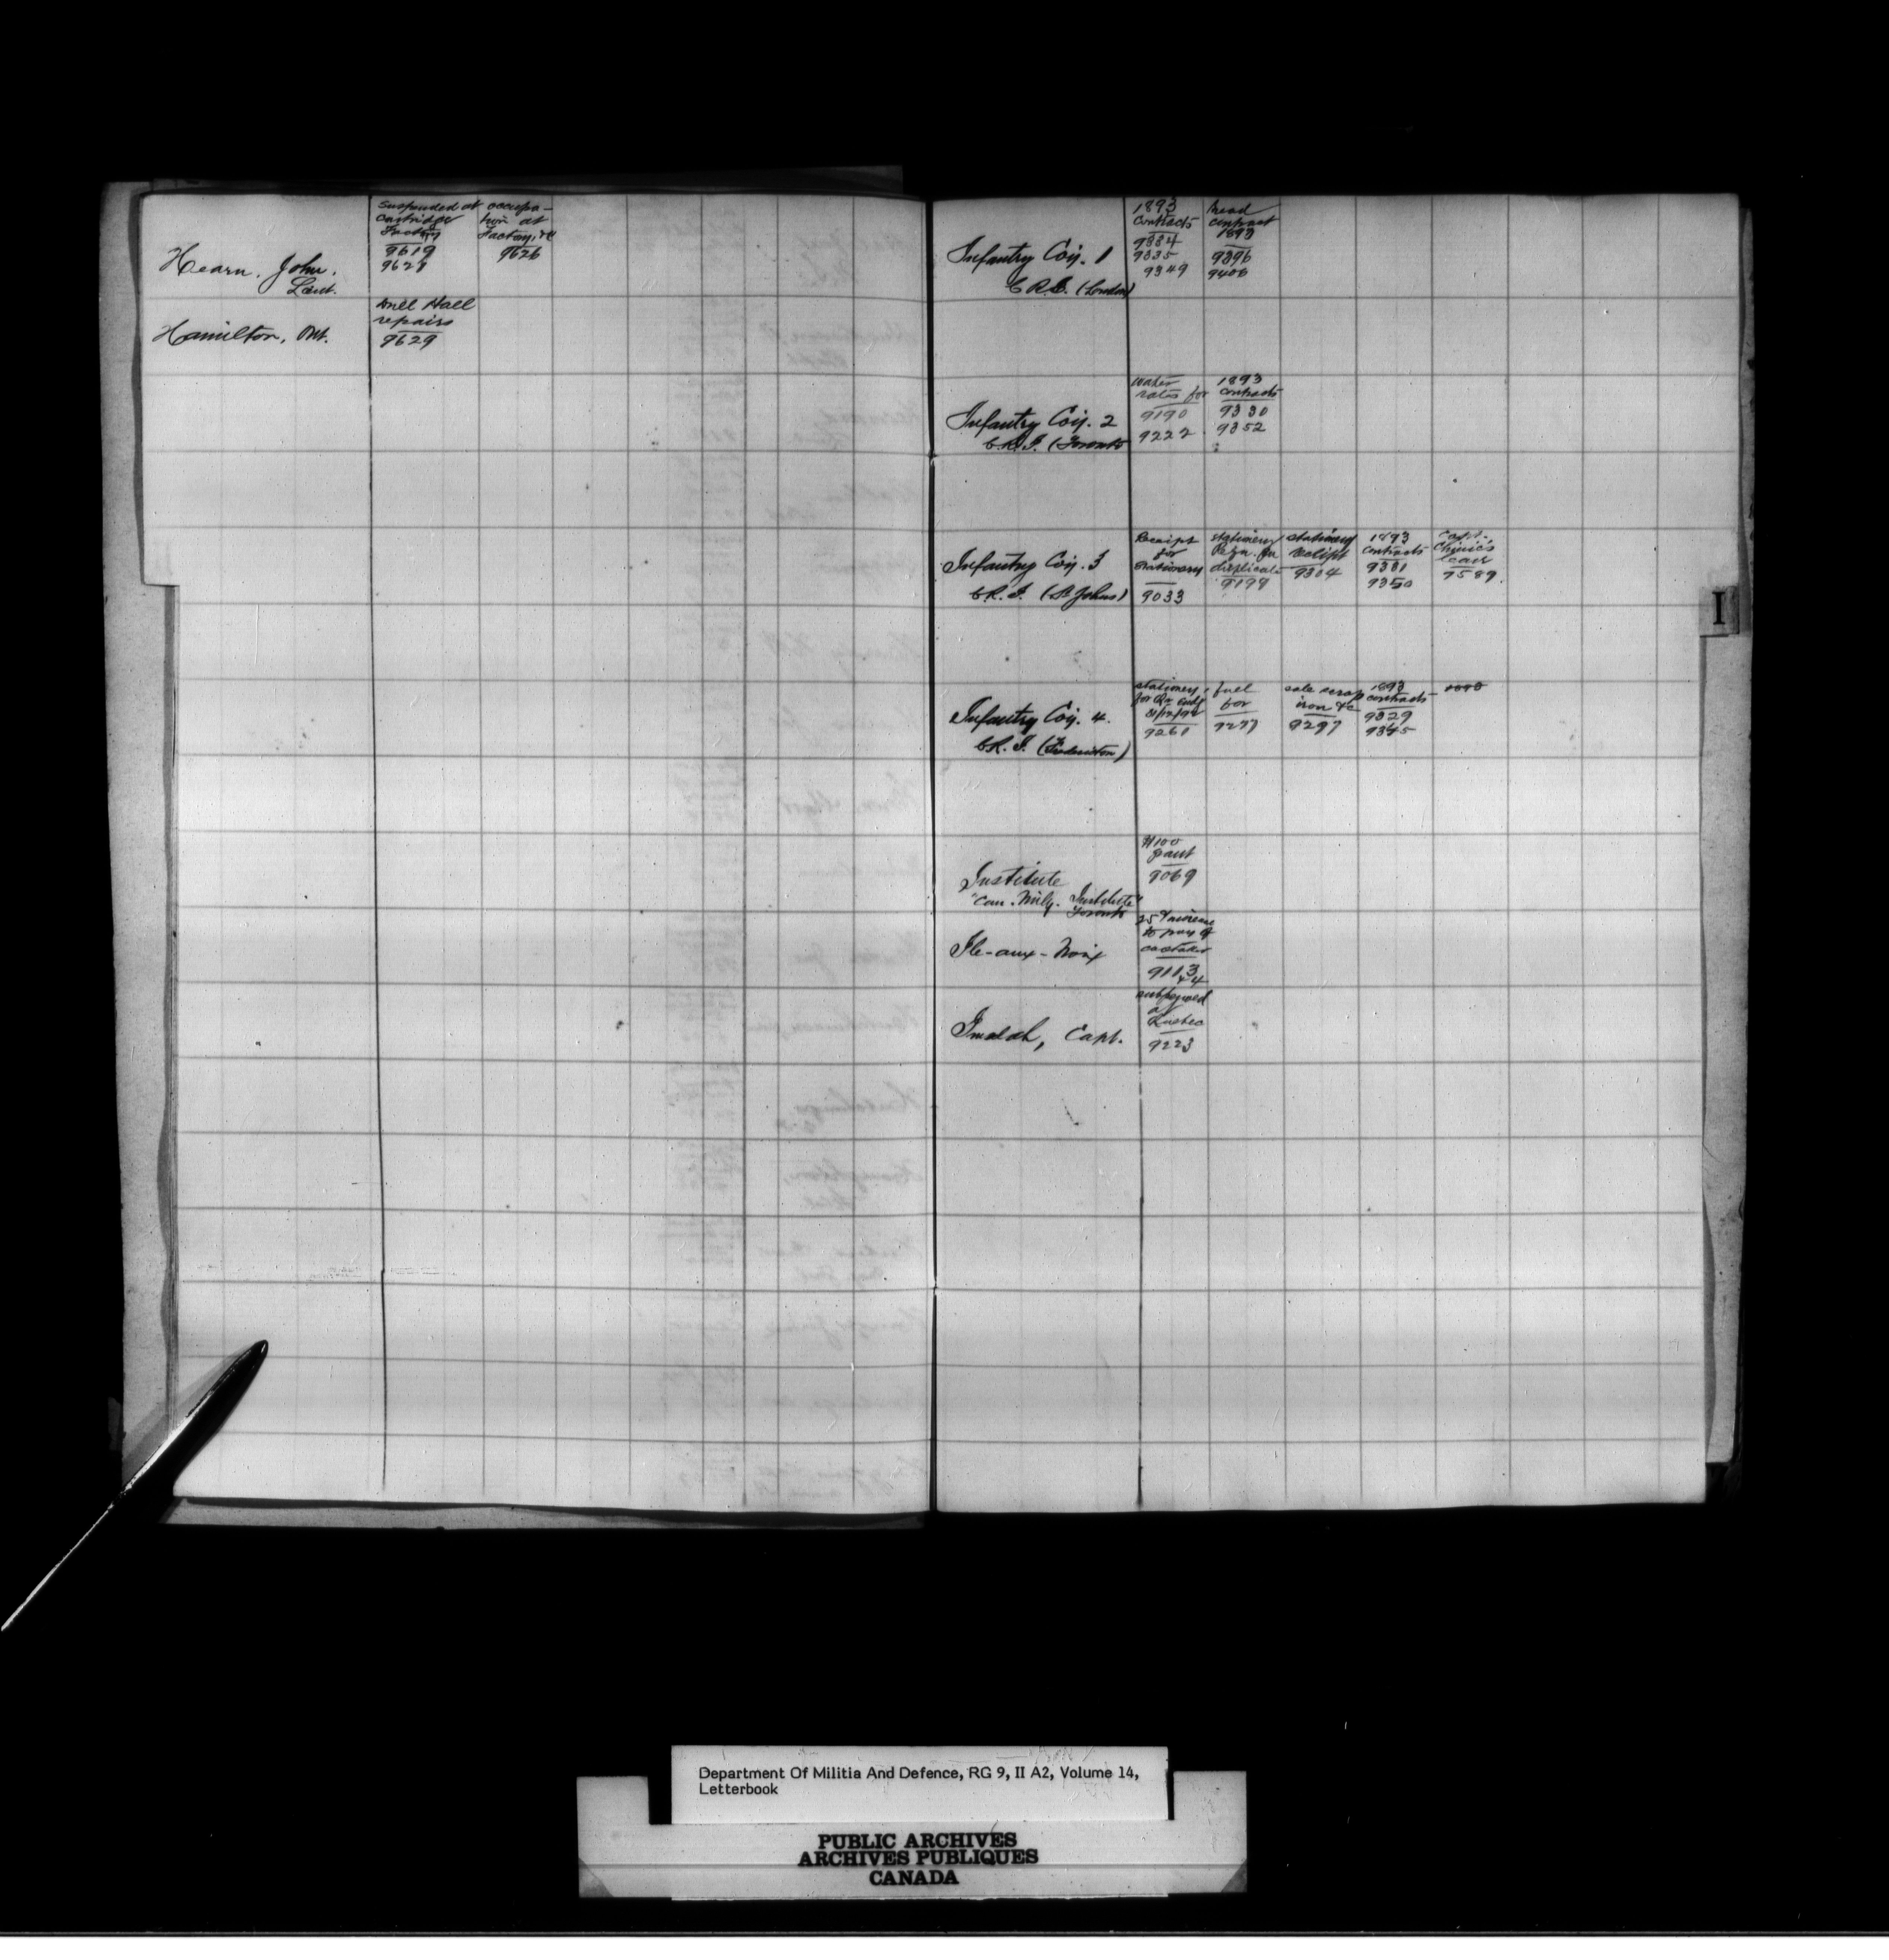 Hearn, John,
Lieut.
Suspended at
Cartridge
Factory
9619
9627
occupa-
tion at
Factory, &c
9626
Hamilton, Ont.
Drill Hall
repairs
9629
Infantry Coy. 1
C.R.I. (London)
1893
Contracts
9334
9335
9349
bread
contract
1893
9396
9406
Infantry Coy. 2
C.R.I. (Toronto
water
rates for
9190
9222
1893
contracts
9330
9352
Infantry Coy. 3
C.R.I. (St Johns)
Receipt
for
Stationery
9033
stationery
Reqn. in
duplicate
9199
stationery
receipt
9304
1893
contracts
9331
9350
Capt.
Chinic's
leave
9589
Infantry Coy. 4.
C.R.I. (Fredericton)
stationery,
for Qr endg
31/12/92
9261
fuel
for
9277
sale scrap
iron &c
9297
1893
contracts
9329
9345
Institute
"Can. Mily. Institute"
Toronto
$100
grant
9069
Ile-aux-Noix
25 ¢ increase
to pay of
caretaker
9113
Imlah, Capt.
subpoenaed
at
Quebec
9223
I
Department Of Militia And Defence, RG 9, II A2, Volume 14,
Letterbook
PUBLIC ARCHIVES
ARCHIVES PUBLIQUES
CANADA